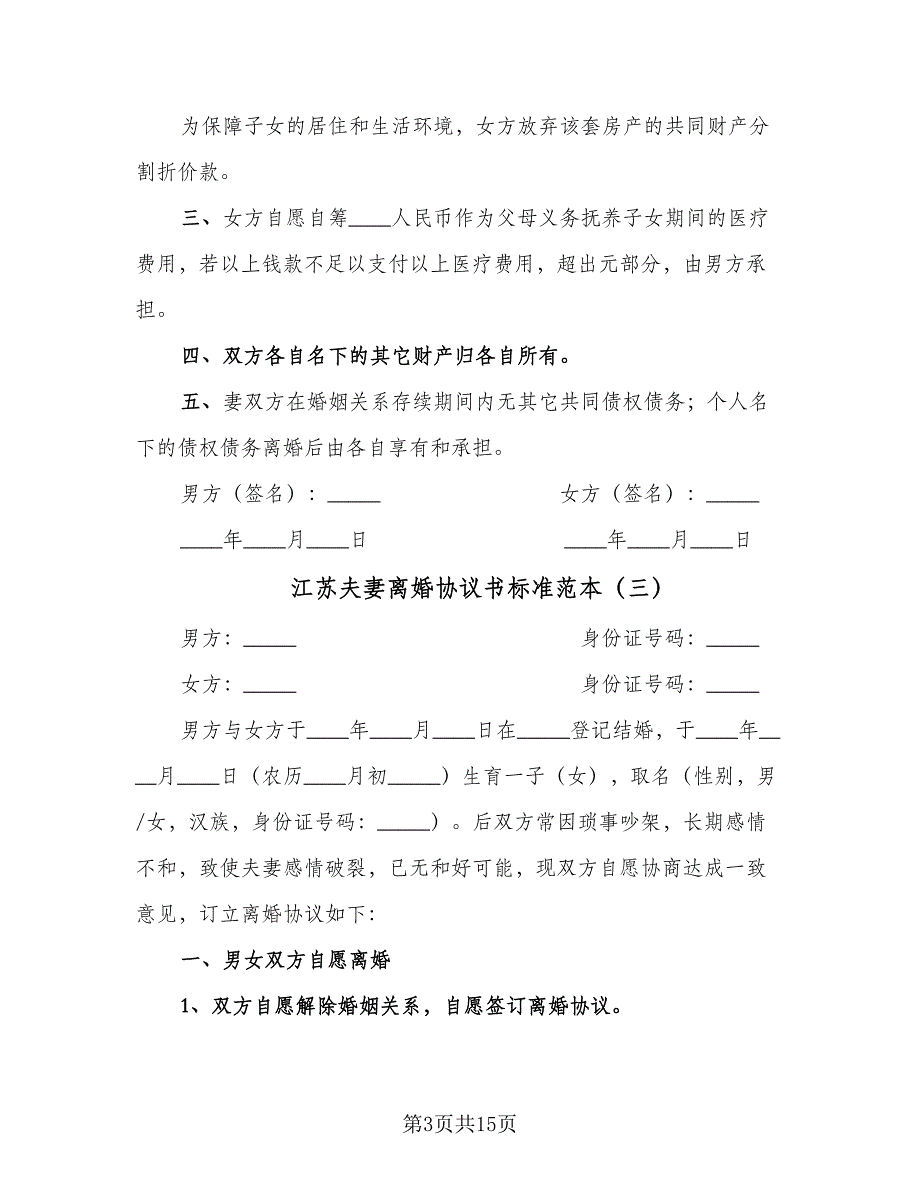 为保障子女的居住和生活环境，女方放弃该套房产的共同财产分
割折价款。
三、女方自愿自筹____人民币作为父母义务抚养子女期间的医疗
费用，若以上钱款不足以支付以上医疗费用，超出元部分，由男方承
担。
四、双方各自名下的其它财产归各自所有。
五、妻双方在婚姻关系存续期间内无其它共同债权债务；个人名
下的债权债务离婚后由各自享有和承担。
男方（签名）：_____ 女方（签名）：_____
____年____月____日 ____年____月____日
江苏夫妻离婚协议书标准范本（三）
男方：_____ 身份证号码：_____
女方：_____ 身份证号码：_____
男方与女方于____年____月____日在_____登记结婚，于____年__
__月____日（农历____月初_____）生育一子（女），取名（性别，男
/女，汉族，身份证号码：_____）。后双方常因琐事吵架，长期感情
不和，致使夫妻感情破裂，已无和好可能，现双方自愿协商达成一致
意见，订立离婚协议如下：
一、男女双方自愿离婚
1、双方自愿解除婚姻关系，自愿签订离婚协议。
第3页共15页